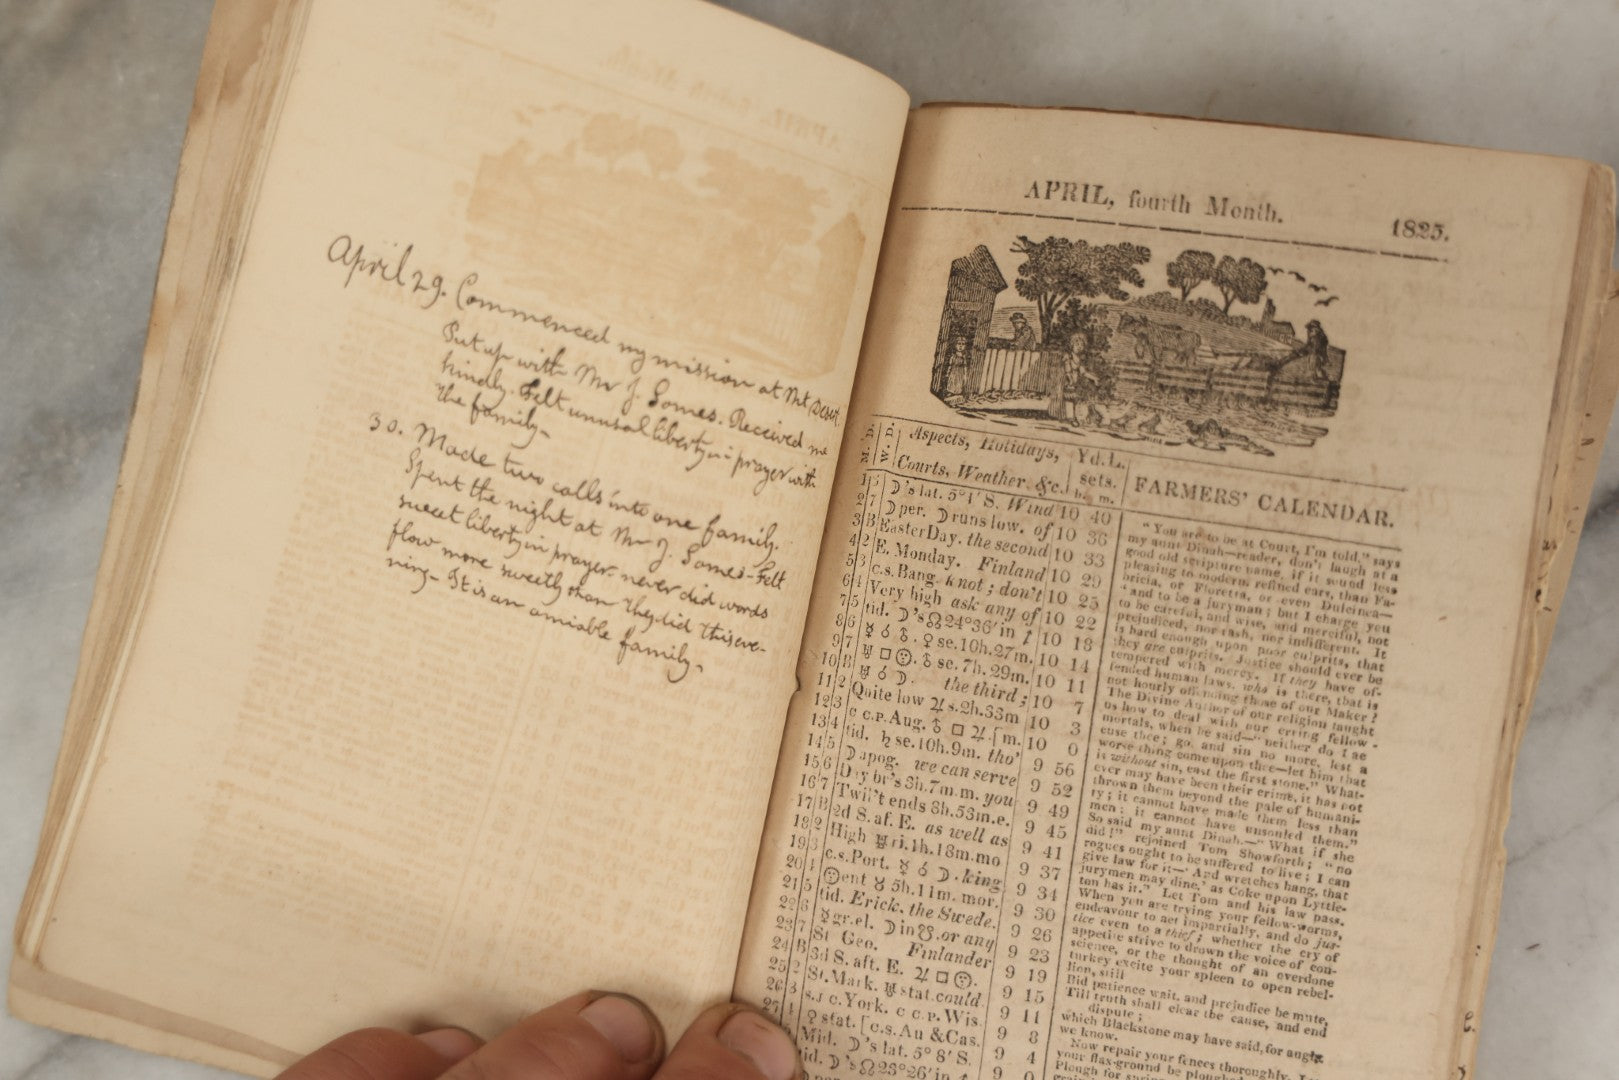 April 29. Commenced my mission at Mt Desert.
Put up with Mr J. Somes. Received me
kindly. Felt unusual liberty in prayer with
the family.
30. Made two calls into one family.
Spent the night at Mr J. Somes - Felt
sweet liberty in prayer. never did words
flow more sweetly than they did this eve-
ning - It is an amiable family.
APRIL, fourth Month. 1825.
M. D. W. D. Aspects, Holidays, Courts, Weather, &c. Yd. L. sets. h. m.
FARMERS' CALENDAR.
1 ☽'s lat. 5° 1' S. Wind 10 40
2 7 ☽ per. ☽ runs low. of 10 36
3 B Easter Day. the second 10 33
4 2 E. Monday. Finland 10 29
5 3 c.s. Bang. knot; don't 10 25
6 4 Very high ask any of 10 22
7 5 tid. ☽'s ☊ 24° 36' in 10 18
8 6 ☿ ☌ ♁. ♀ se. 10h. 27m. 10 14
9 7 ♅ □ ☉. ♁ se. 7h. 29m. 10 11
10 B ♅ ☌ ☽. the third; 10 7
11 2 Quite low ♃ s. 2h. 33m 10 3
12 3 c c.p. Aug. ♁ □ ♃. [m. 10 0
13 4 tid. ♄ se. 10h. 9m. tho' 9 56
14 5 ☽ apog. we can serve 9 52
15 6 Day br's 3h. 7m. m. you 9 49
16 7 Twil't ends 8h. 53m. e. 9 45
17 B 2d S. af. E. as well as 9 41
18 2 High ♅ ri. 1h. 18m. mo 9 37
19 3 c.s. Port. ☿ ☌ ☽. king 9 34
20 4 ☉ ent ♉ 5h. 11m. mor. 9 30
21 5 tid. Erick, the Swede, 9 26
22 6 ☿ gr. el. ☽ in ☋. or any 9 23
23 7 St Geo. Finlander 9 19
24 B 3d S. aft. E. ♃ □ ☉. 9 15
25 2 St. Mark. ♅ stat. could. 9 11
26 3 s.j c. York. c c.p. Wis. 9 8
27 4 ♀ stat. [c.s. Au & Cas. 9 4
Mid. ☽'s lat. 5° 8' S. 9 0
tid. ☽'s ☊ 23° 26' in
"You are to be at Court, I'm told," says
my aunt Dinah—reader, don't laugh at a
good old scripture name, if it sound less
pleasing to modern refined ears, than Fa-
bricia, or Floretta, or even Dulcinea—
"and to be a juryman; but I charge you
to be careful, and wise, and merciful, not
prejudiced, nor rash, nor indifferent. It
is hard enough upon poor culprits, that
they are culprits. Justice should ever be
tempered with mercy. If they have of-
fended human laws, who is there, that is
not hourly offending those of our Maker?
The Divine Author of our religion taught
us how to deal with our erring fellow-
mortals, when he said—"neither do I ac
cuse thee; go, and sin no more, lest a
worse thing come upon thee—let him that
is without sin, cast the first stone." What-
ever may have been their crime, it has not
thrown them beyond the pale of humani-
ty; it cannot have made them less than
men; it cannot have unsouled them."
So said my aunt Dinah.—"What if she
did!" rejoined Tom Showforth; "no
rogues ought to be suffered to live; I can
give law for it—'And wretches hang, that
jurymen may dine,' as Coke upon Lyttle-
ton has it." Let Tom and his law pass.
When you are trying your fellow-worms,
endeavour to act impartially, and do jus-
tice even to a thief; whether the cry of
appetite strive to drown the voice of con-
science, or the thought of an overdone
turkey excite your spleen to open rebel-
lion, still
Bid patience wait, and prejudice be mute,
Till truth shall clear the cause, and end
dispute;
which Blackstone may have said, for aught
we know.
Now repair your fences thoroughly.
your flax-ground be ploughed
Plough for